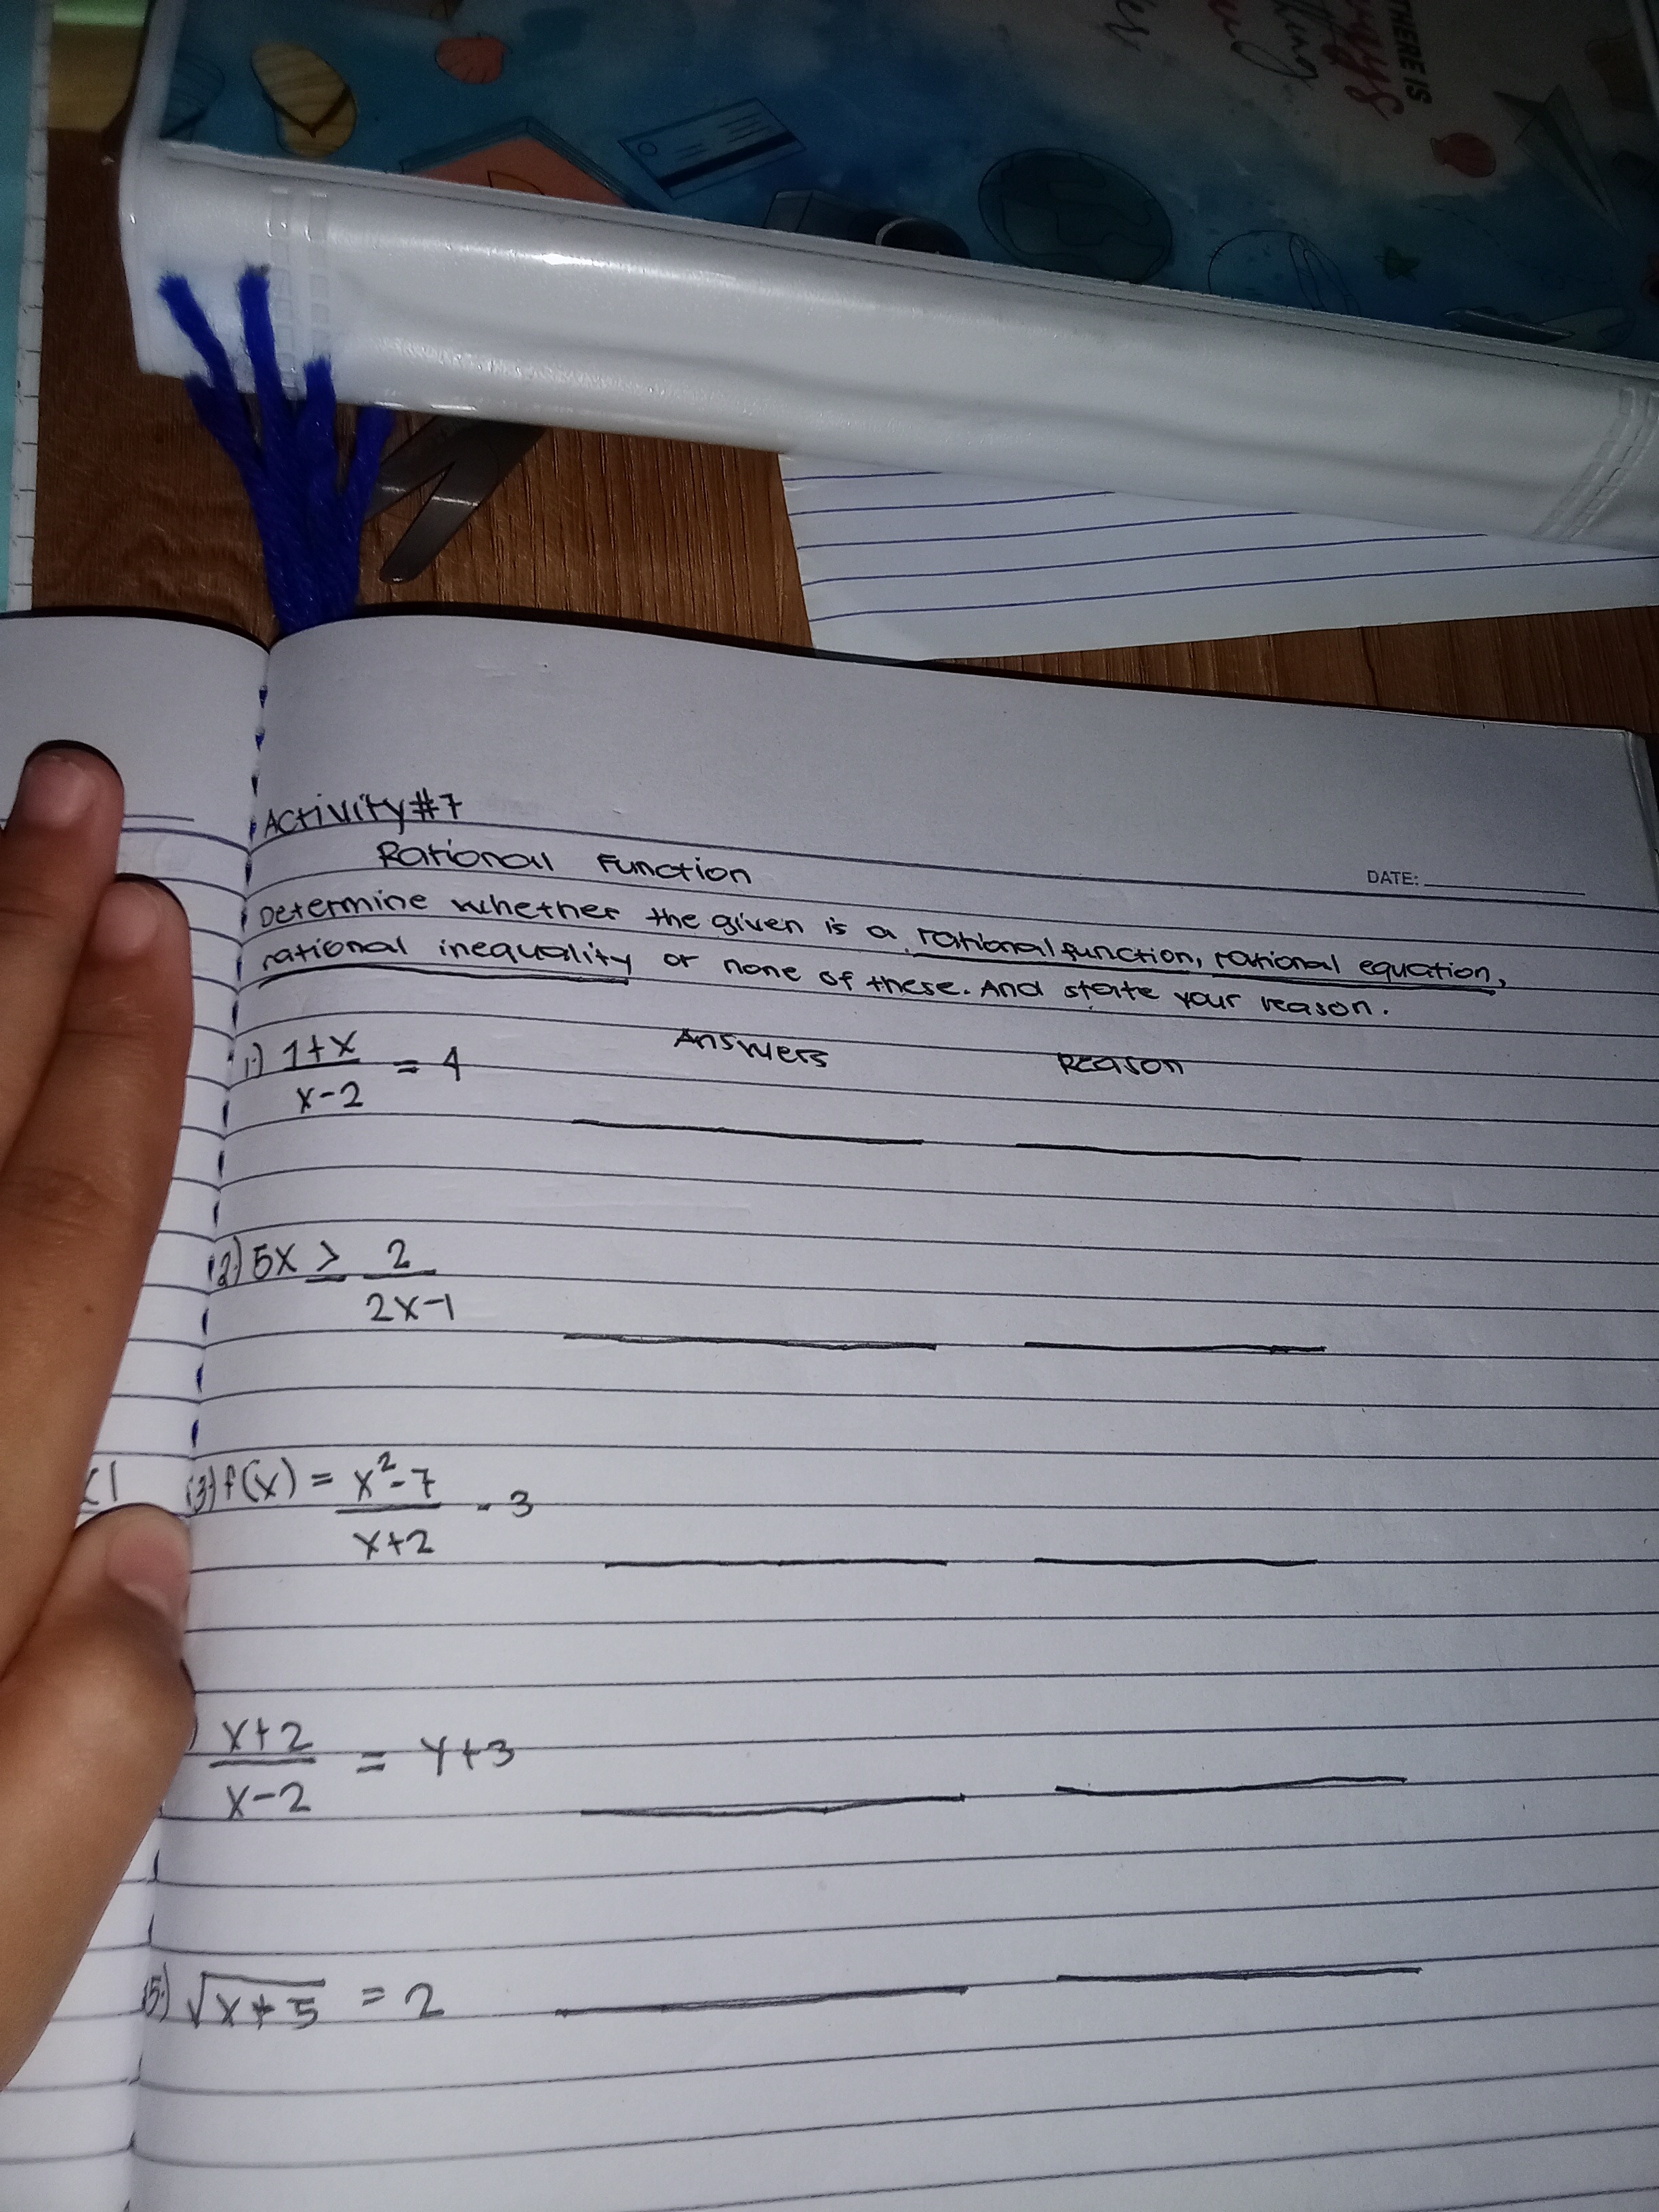 THERE IS
Activity#7
Rational Function
DATE:
Determine whether the given is a rational function, rational equation,
rational inequality or none of these. And state your reason.
Answers
Reason
1.) 1+x / x-2 = 4
2.) 5x ≥ 2 / 2x-1
3.) f(x) = x²-7 / x+2 - 3
) x+2 / x-2 = y+3
5.) √x+5 = 2